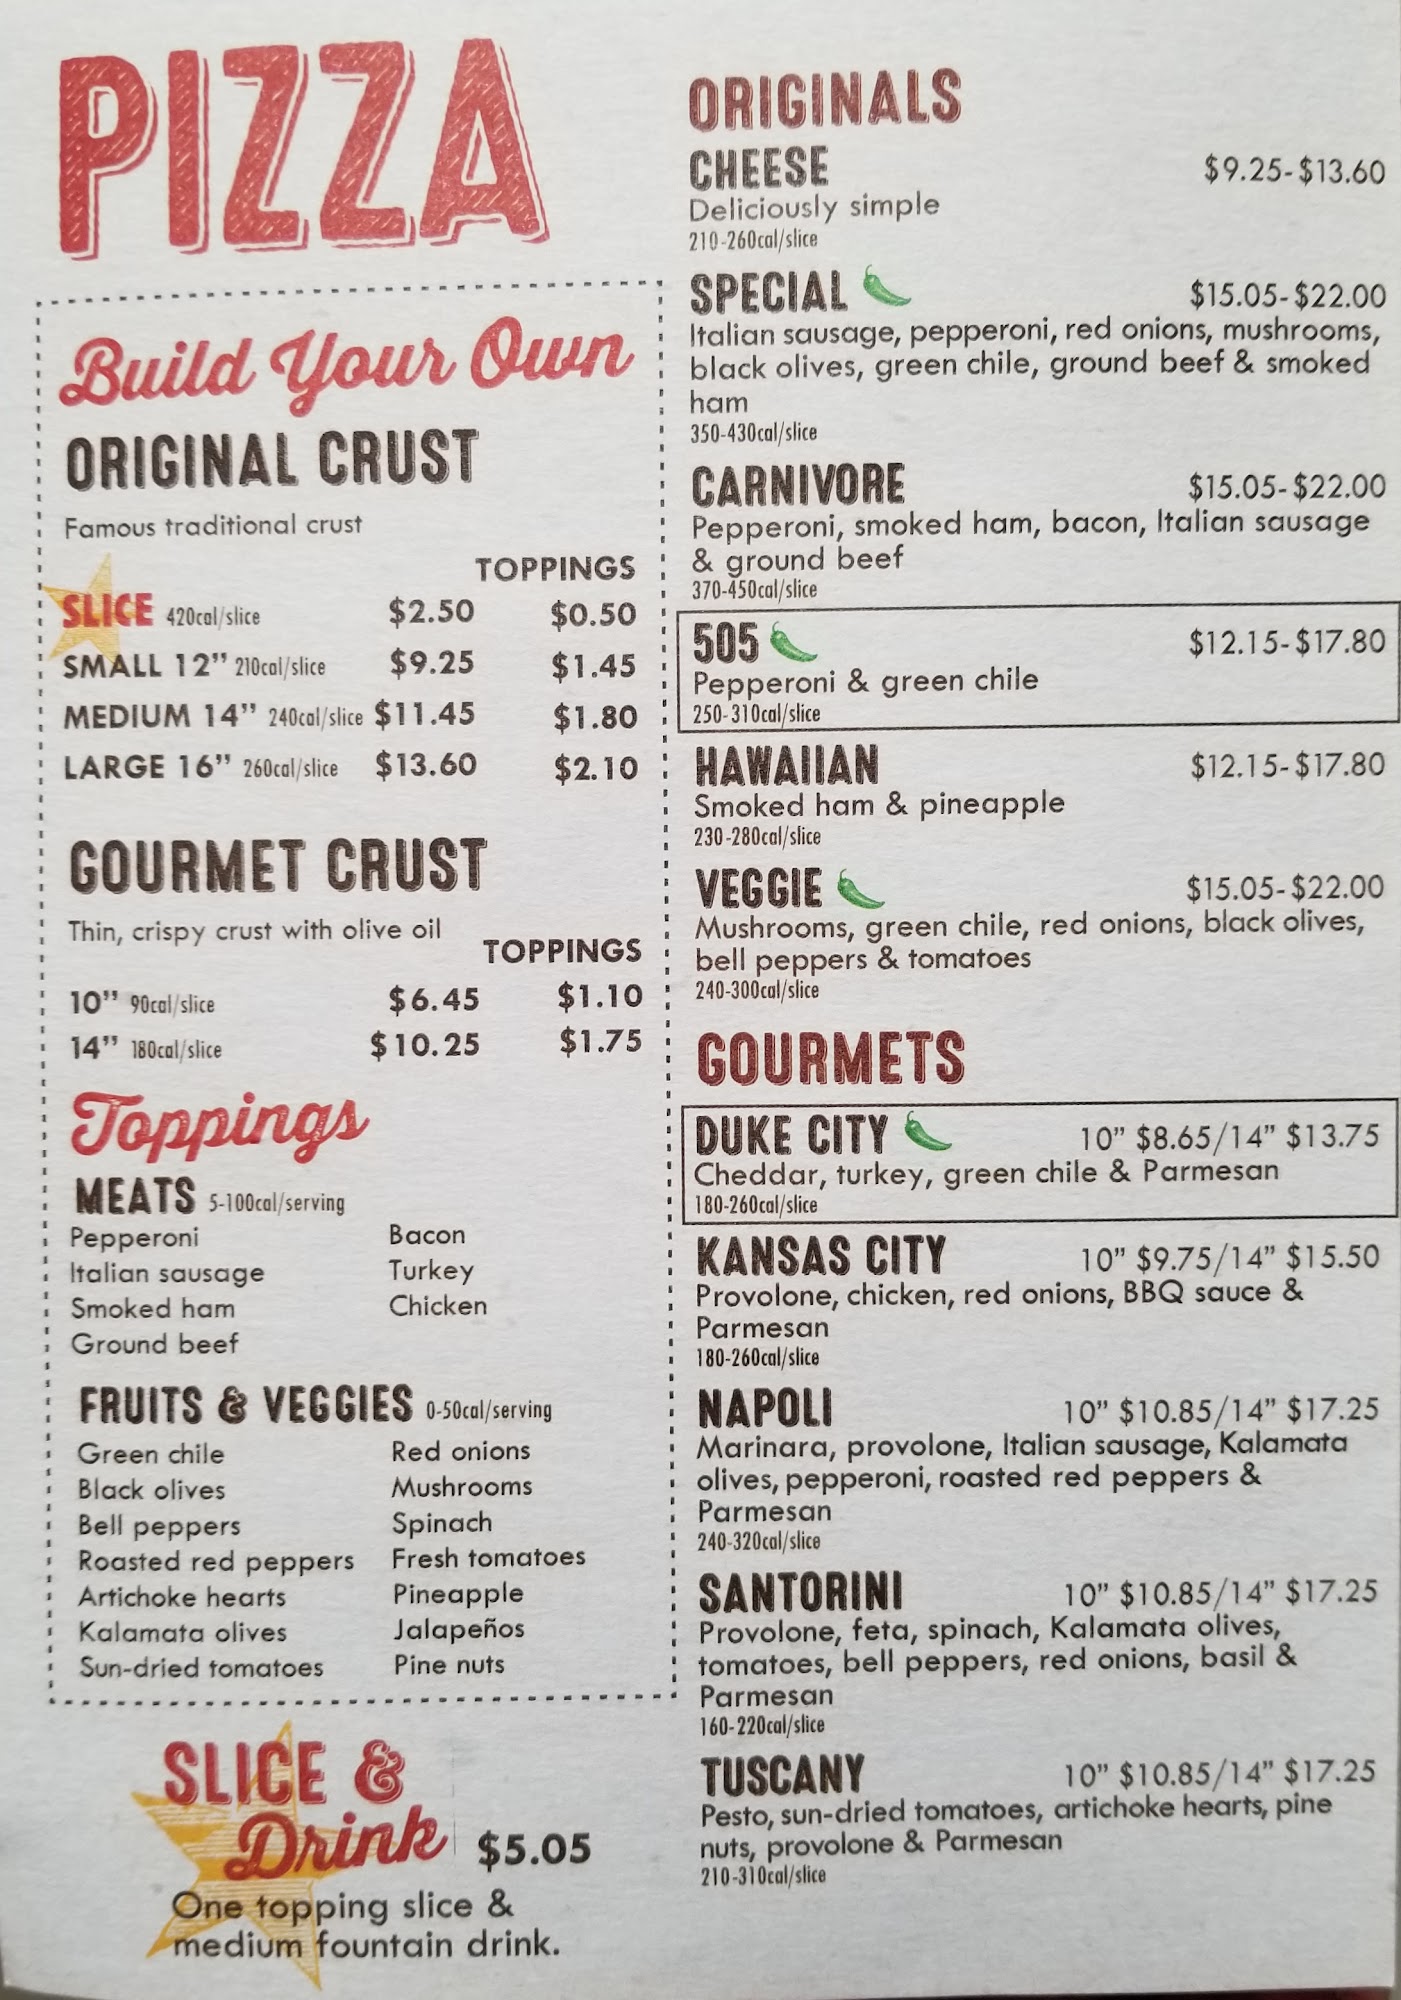 PIZZA
Build Your Own
ORIGINAL CRUST
Famous traditional crust
TOPPINGS
SLICE 420cal/slice $2.50 $0.50
SMALL 12" 210cal/slice $9.25 $1.45
MEDIUM 14" 240cal/slice $11.45 $1.80
LARGE 16" 260cal/slice $13.60 $2.10
GOURMET CRUST
Thin, crispy crust with olive oil
TOPPINGS
10" 90cal/slice $6.45 $1.10
14" 180cal/slice $10.25 $1.75
Toppings
MEATS 5-100cal/serving
Pepperoni Bacon
Italian sausage Turkey
Smoked ham Chicken
Ground beef
FRUITS & VEGGIES 0-50cal/serving
Green chile Red onions
Black olives Mushrooms
Bell peppers Spinach
Roasted red peppers Fresh tomatoes
Artichoke hearts Pineapple
Kalamata olives Jalapeños
Sun-dried tomatoes Pine nuts
SLICE &
Drink $5.05
One topping slice &
medium fountain drink.
ORIGINALS
CHEESE $9.25-$13.60
Deliciously simple
210-260cal/slice
SPECIAL $15.05-$22.00
Italian sausage, pepperoni, red onions, mushrooms,
black olives, green chile, ground beef & smoked
ham
350-430cal/slice
CARNIVORE $15.05-$22.00
Pepperoni, smoked ham, bacon, Italian sausage
& ground beef
370-450cal/slice
505 $12.15-$17.80
Pepperoni & green chile
250-310cal/slice
HAWAIIAN $12.15-$17.80
Smoked ham & pineapple
230-280cal/slice
VEGGIE $15.05-$22.00
Mushrooms, green chile, red onions, black olives,
bell peppers & tomatoes
240-300cal/slice
GOURMETS
DUKE CITY 10" $8.65/14" $13.75
Cheddar, turkey, green chile & Parmesan
180-260cal/slice
KANSAS CITY 10" $9.75/14" $15.50
Provolone, chicken, red onions, BBQ sauce &
Parmesan
180-260cal/slice
NAPOLI 10" $10.85/14" $17.25
Marinara, provolone, Italian sausage, Kalamata
olives, pepperoni, roasted red peppers &
Parmesan
240-320cal/slice
SANTORINI 10" $10.85/14" $17.25
Provolone, feta, spinach, Kalamata olives,
tomatoes, bell peppers, red onions, basil &
Parmesan
160-220cal/slice
TUSCANY 10" $10.85/14" $17.25
Pesto, sun-dried tomatoes, artichoke hearts, pine
nuts, provolone & Parmesan
210-310cal/slice